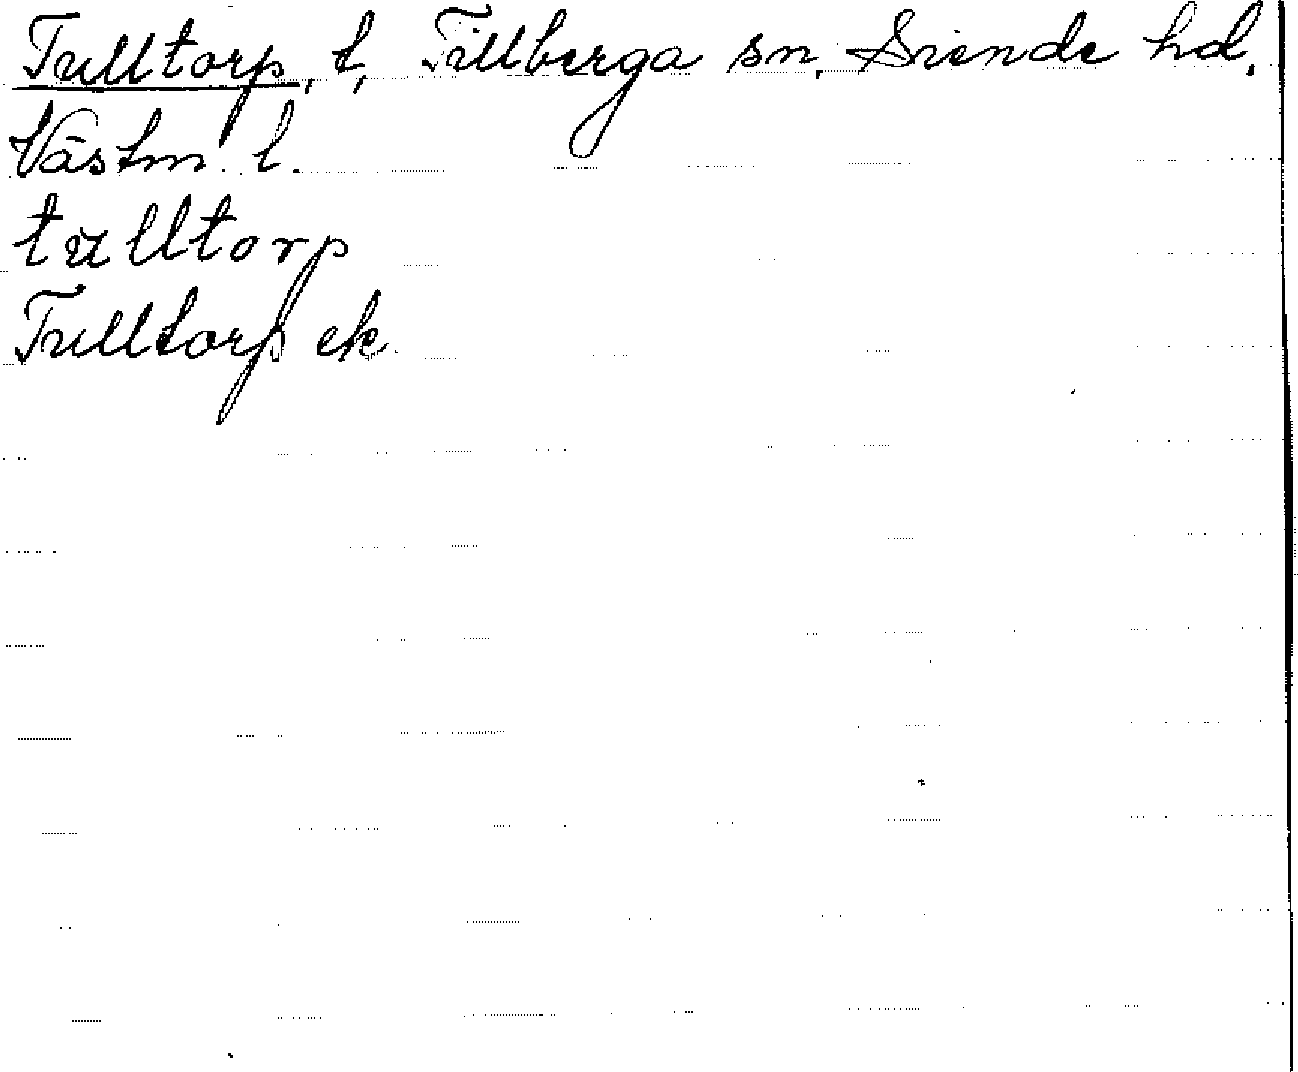 Tulltorp, t, Tillberga sn, Siende hd,
Västm. l.
tulltorp
Tulltorp ek.